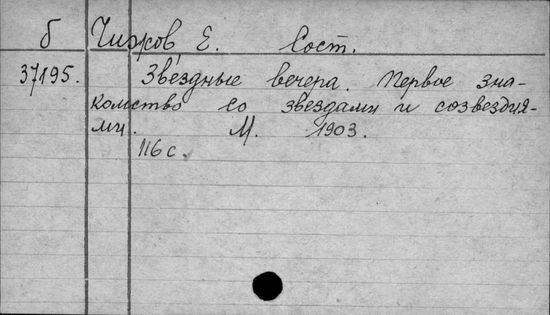 б Чижов, Е. Сост.
37195. Звёздные вечера. Первое зна-
комство со звездами и созвездия-
ми. М. 1903.
116 с.